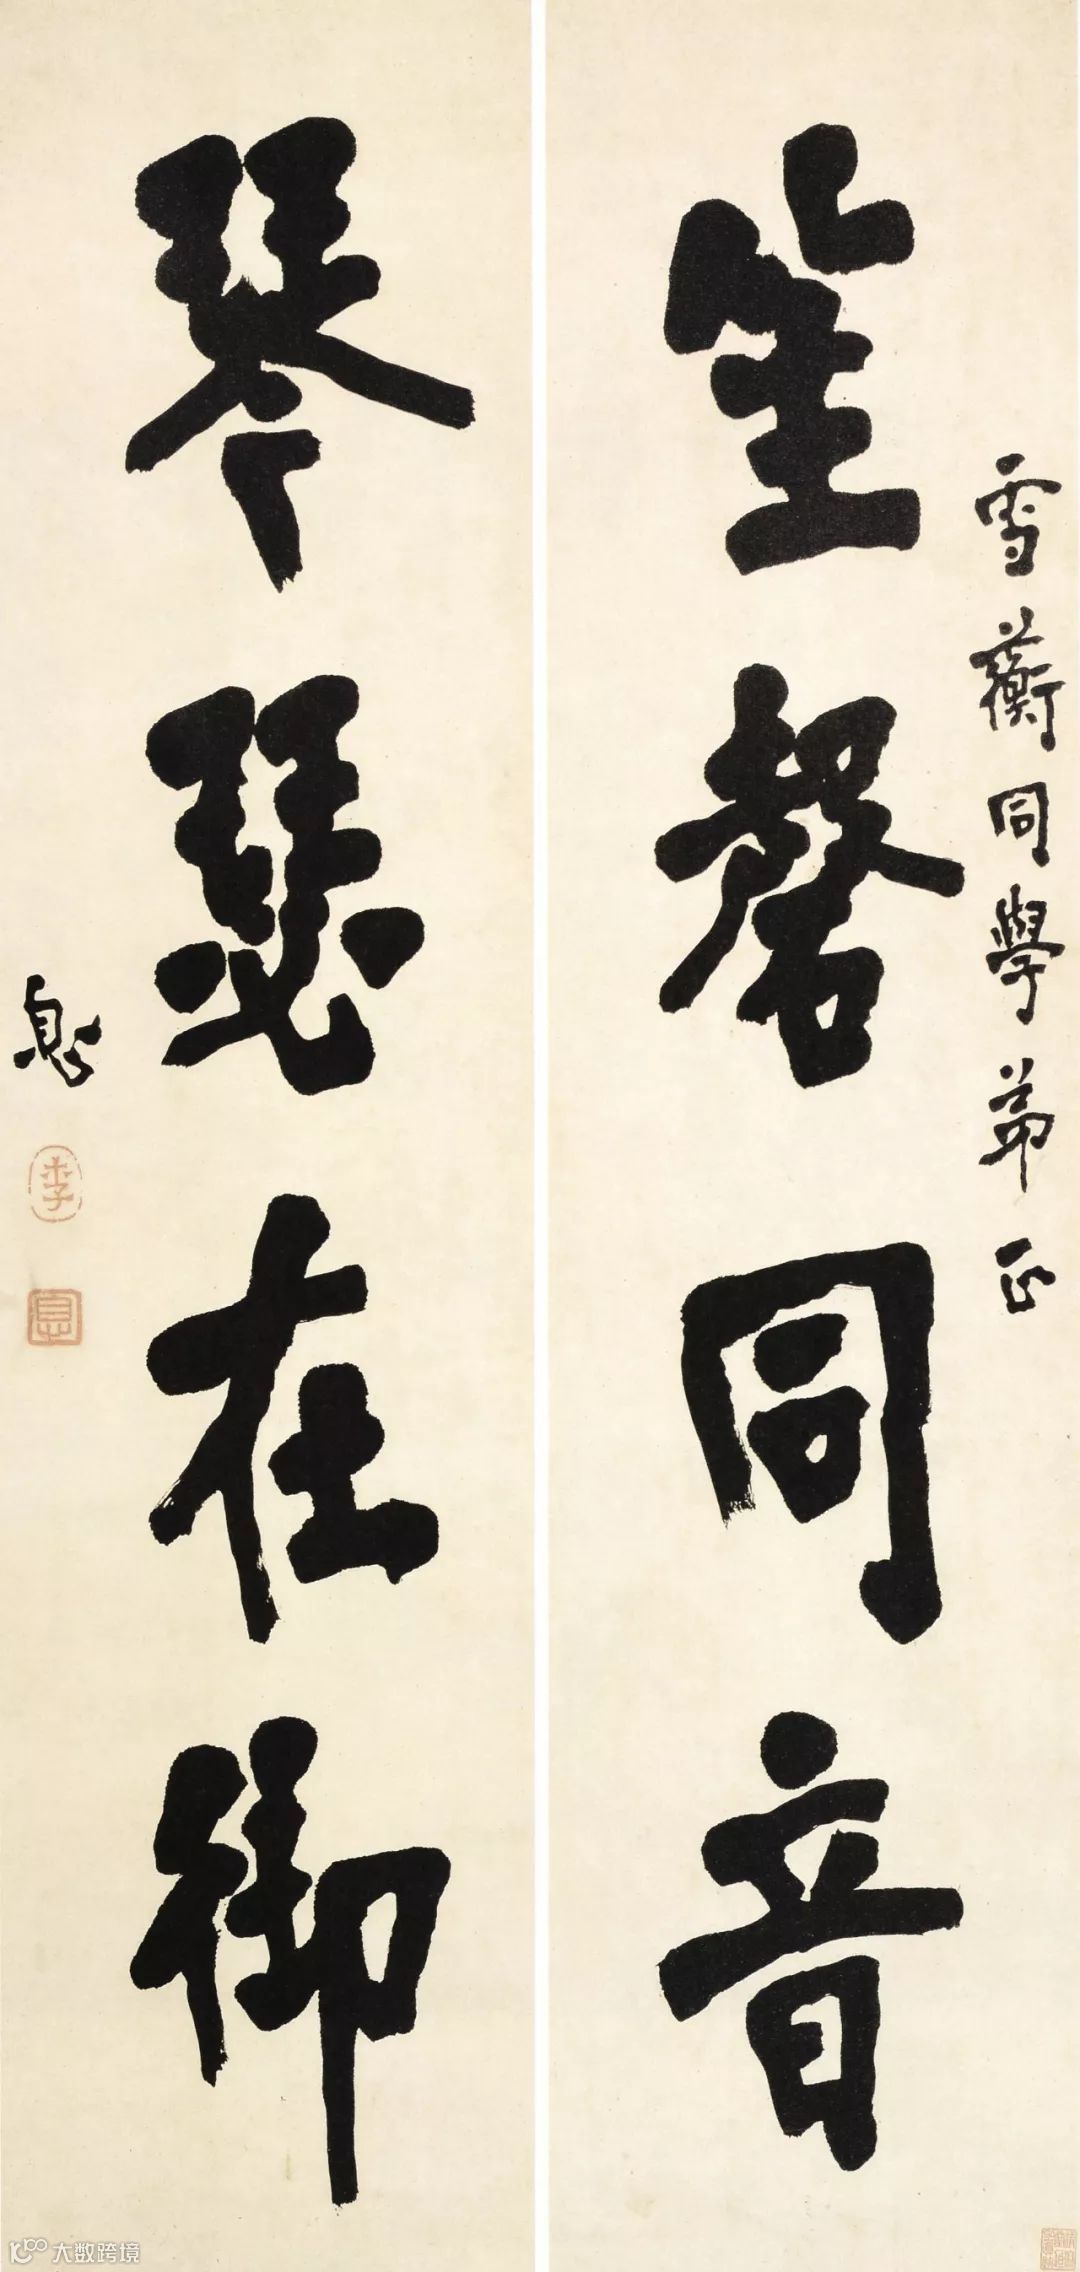 笙磬同音
雪蘅同學弟正
琴瑟在御
息
李
息
大数跨境